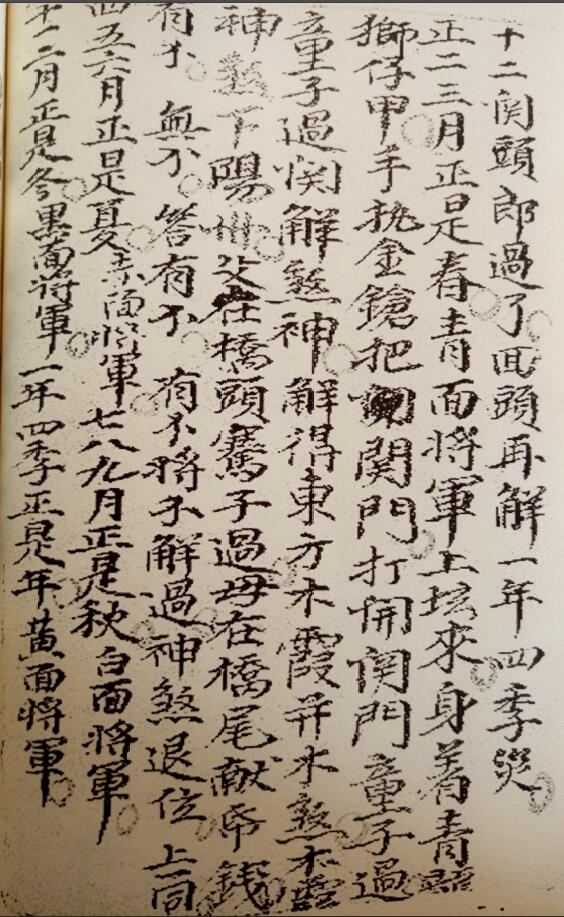 十二関頭郎過了囬頭再解一年四季災
正二三月正是春青面将軍上坛來身着青
獅仔甲手执金鎗把関門打開関門童子過
童子過関解煞神解得東方木霞并木煞木霊
神煞下陽州父在橋頭寫子過母在橋尾献帋錢
有不無不答有不有不将不解過神煞退位上同
四五六月正是夏赤面将軍七八九月正是秋白面将軍
十二月正是冬黒面将軍一年四季正是年黄面将軍